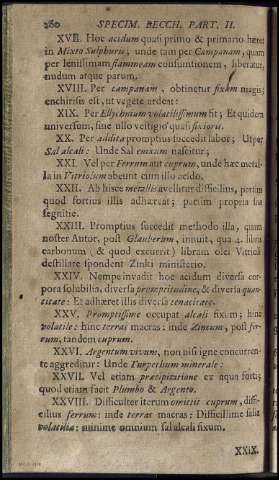 260 SPECIM. BECCH. PART. II.
XVII. Hoc acidum quasi primo & primario hæret
in Mixto Sulphuris; unde tam per Campanam, quam
per lenissimam flammeam consumtionem, liberatur,
nudum atque purum.
XVIII. Per campanam, obtinetur fixum magis;
enchirisis est, ut vegete ardeat:
XIX. Per Ellychnium volatilissimum fit; Et quidem
universum, sine ullo vestigio quasi fixioris.
XX. Per alkalia promptius succedit labor; Utpote
Sal alcali: Unde Sal enixum nascitur;
XXI. Vel per Ferrum aut cuprum, unde hæc metal-
la in Vitriolum abeunt cum illo acido.
XXII. Ab hisce metallis avellitur difficilius, partim
quod fortius illis adhæreat; partim propria sua
segnitie.
XXIII. Promptius succedit methodo illa, quam
noster Autor, post Glauberum, innuit, qua 4. libra
carbonum (& quod excurrit) libram olei Vitrioli
destillare spondent Zinki ministerio.
XXIV. Nempe invadit hoc acidum diversa cor-
pora solubilia, diversa promptitudine, & diversa quan-
titate: Et adhæret illis diversa tenacitate.
XXV. Promptissime occupat alcali fixum; hinc
volatile: hinc terras macras: inde Zincum, post fer-
rum, tandem cuprum.
XXVI. Argentum vivum, non nisi igne concurren-
te aggreditur: Unde Turpethum minerale:
XXVII. Vel etiam præcipitatione ex aqua forti;
quod etiam facit Plumbo & Argento.
XXVIII. Difficulter iterum omittit cuprum, diffi-
cilius ferrum: inde terras macras: Difficillime salia
volatilia: minime omnium sal alcali fixum.
XXIX.